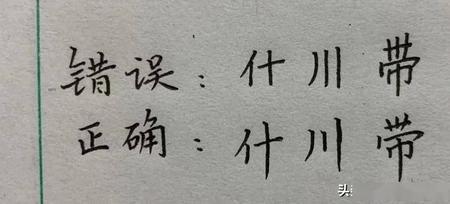 错误：什川带
正确：什川带
头